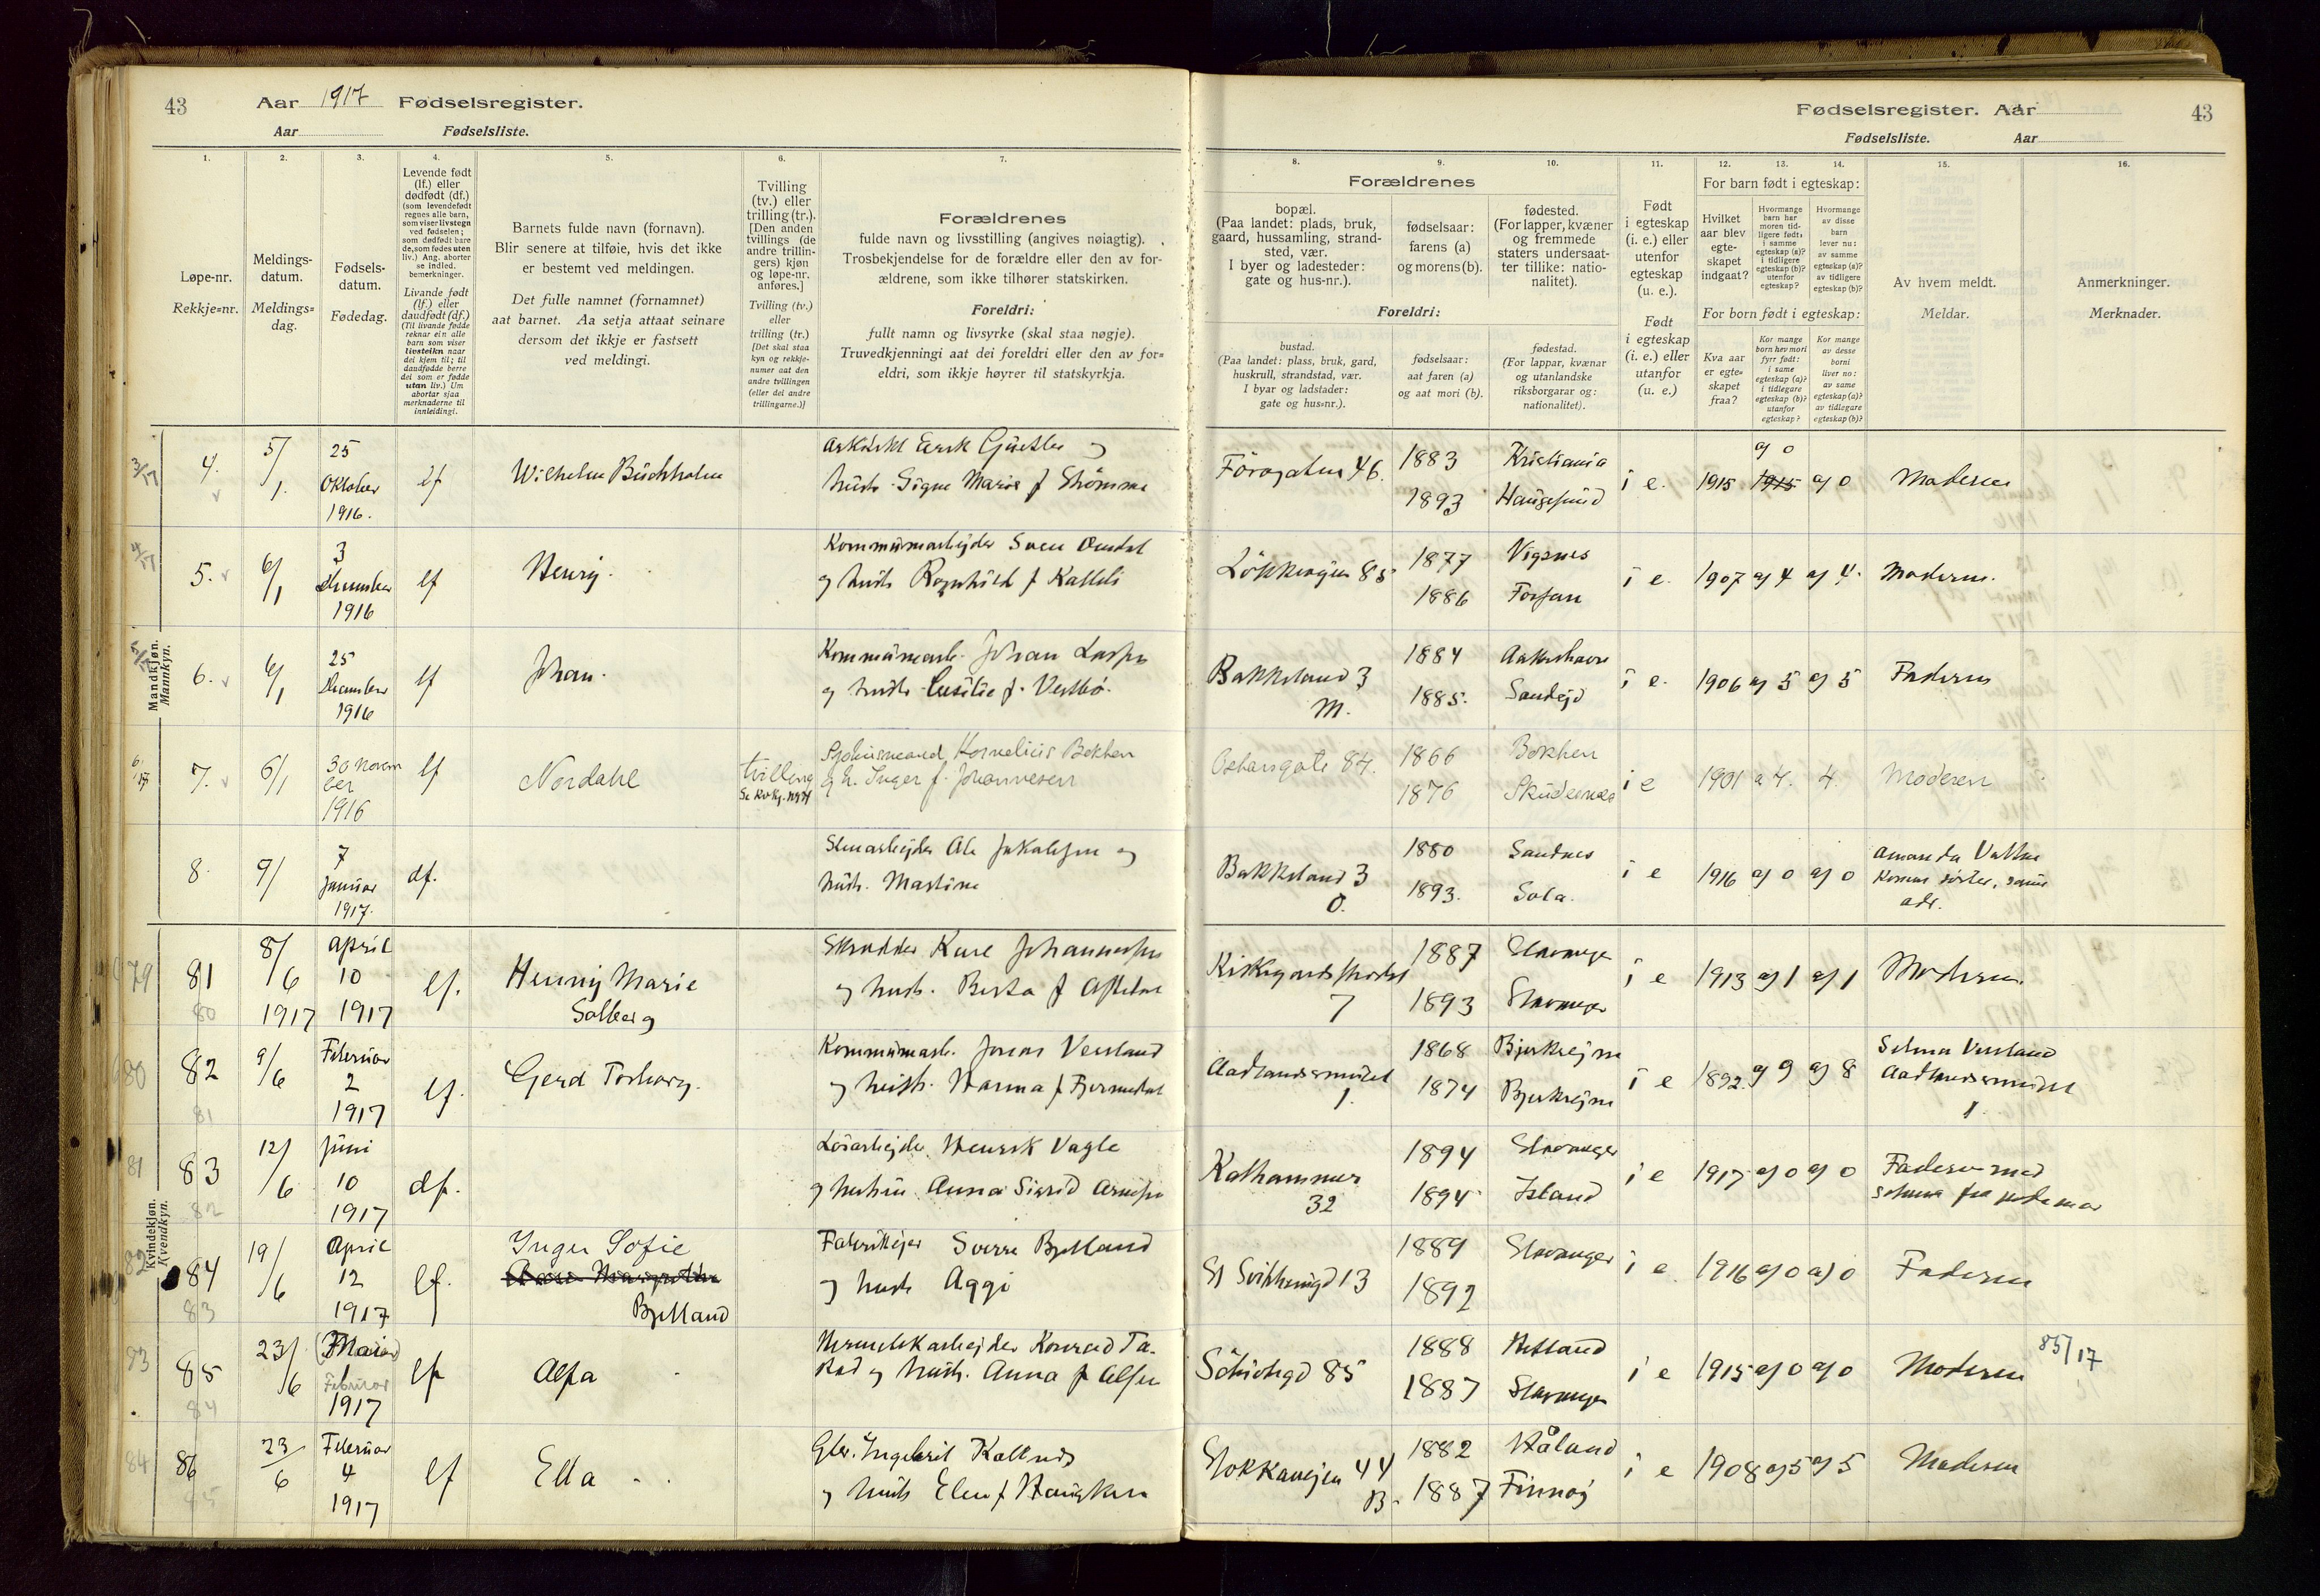 43
Aar 1917 Fødselsregister.
Aar Fødselsliste.
1.
Løpe-nr.
Rekkje=nr.
2.
Meldings-
datum.
Meldings=
dag.
3.
Fødsels-
datum.
Fødedag.
4.
Levende født
(lf.) eller
dødfødt (df.)
(som levendefødt
regnes alle barn,
som viser livstegn
ved fødselen;
som dødfødt bare
de, som fødes uten
liv.) Ang. aborter
se indled.
bemerkninger.
Livande født
(lf.) eller
daudfødt (df.)
(Til livande fødde
reknar ein alle
barn som viser
livsteikn naar
dei kjem til; til
daudfødde berre
dei som er fødde
utan liv.) Um
abortar sjaa
merknaderne til
innleidingi.
5.
Barnets fulde navn (fornavn).
Blir senere at tilføie, hvis det ikke
er bestemt ved meldingen.
Det fulle namnet (fornamnet)
aat barnet. Aa setja attaat seinare
dersom det ikkje er fastsett
ved meldingi.
6.
Tvilling
(tv.) eller
trilling (tr.).
[Den anden
tvillings (de
andre trillin-
gers) kjøn
og løpe-nr.
anføres.]
Tvilling (tv.)
eller
trilling (tr.)
[Det skal staa
kyn og rekkje-
numer aat den
andre tvillingen
(eller dei andre
trillingarne.)]
7.
Forældrenes
fulde navn og livsstilling (angives nøiagtig).
Trosbekjendelse for de forældre eller den av for-
ældrene, som ikke tilhører statskirken.
Foreldri:
fullt namn og livsyrke (skal staa nøgje).
Truvedkjenningi aat dei foreldri eller den av for=
eldri, som ikkje høyrer til statskyrkja.
Fødselsregister. Aar
43
Fødselsliste. Aar
8.
Forældrenes
bopæl.
(Paa landet: plads, bruk,
gaard, hussamling, strand-
sted, vær.
I byer og ladesteder:
gate og hus-nr.).
Foreldri:
bustad.
(Paa landet: plass, bruk, gard,
huskrull, strandstad, vær.
I byar og ladstader:
gate og hus=nr.).
9.
fødselsaar:
farens (a)
og morens (b).
fødselsaar:
aat faren (a)
og aat mori (b).
10.
fødested.
(For lapper, kvæner
og fremmede
staters undersaat-
ter tillike: natio-
nalitet).
fødestad.
(For lappar, kvænar
og utanlandske
riksborgarar og:
nationalitet).
11.
Født
i egteskap
(i. e.) eller
utenfor
egteskap
(u. e.).
Født
i egteskap
(i. e.) eller
utanfor
(u. e.)
12. 13. 14.
For barn født i egteskap:
Hvilket
aar blev
egte-
skapet
indgaat?
Hvormange
barn har
moren tid-
ligere født:
i samme
egteskap (a)?
i tidligere
egteskap (b)?
utenfor
egteskap?
Hvormange
av disse
barn
lever nu:
av samme
egteskap (a)?
av tidligere
egteskap (b)?
For born født i egteskap:
Kva aar
er egte=
skapet
fraa?
Kor mange
born hev mori
fyrr født:
i same
egteskap (a)?
i tidlegare
egteskap (b)?
utanfor
egteskap?
Kor mange
av desse
borni
liver no:
av same
egteskap (a)?
av tidlegare
egteskap (b)?
15.
Av hvem meldt.
Meldar.
16.
Anmerkninger.
Merknader.
Mandkjøn.
Mannkyn.
4. 5/1. 25 Oktober 1916. lf Wilhelm Buchholm
Hustr. Signe Marie f
46. 1883 Kristiania
1893 Haugesund
i e. 1915 a) 0 a) 0 Moderen
5. 6/1 3 December 1916 lf Henry.
og hustr Ragnhild f
85 1877 Vigsnes
1886 Forsan
i e. 1907 a) 4 a) 4. Moderen.
6. 6/1 25 December 1916 lf Johan.
Kommunearb. Johan
og hustr. f. Vestbø.
Bakkeland 3 M.
1884
1885. Sandeid
i e. 1906 a) 5 a) 5 Faderen
7. 6/1 30 november 1916 lf Nordahl tvilling
Kornelius Bokken
og h. Inger f. Johannesen
84. 1866 Bokken
1876 Skudesnes
i e 1901 a 4. 4. Moderen
8. 9/ 7 Januar 1917. df.
Stenarbejder Ole Jakobsen og
hustr. Martine
Bakkeland 3 O.
1880 Sandnes
1893. Sola.
i e 1916 a) 0 a) 0 Amanda
Konens søster, samme
adr.
Kvindekjøn.
Kvendkyn.
79 81 8/6 1917 april 10 1917 lf. Henny Marie
Solberg
80
Skrædder Karl Johannessen
og hustr. Berta f
7 1887 Stavanger
1893 Stavanger
i e 1913 a) 1 a) 1 Moderen.
80 82 9/6 Februar 2 1917 lf. Gerd Torborg.
81
Kommunearb. Jonas
og hustr. Hanna f
1. 1868 Bjerkrejm
1874 Bjerkrejm
i e 1892. a) 9 a) 8 Selma
1.
81 83 12/6 Juni 10 1917 df.
82
Løsarbejder. Henrik Vagle
og hustru Anna Sigrid
Kathammer 32
1894 Stavanger
1894 Island
i e 1917 a) 0 a) 0 Faderen med
fra jordemor
82 84 19/6 April 12 1917 lf. Inger Sofie
Bjelland
83
Fabrikkejer Sverre Bjelland
og hustr Aggi
13 1889 Stavanger
1892
i e. 1916 a) 0 a) 0 Faderen
83 85 23/6 Mai 1 Februar 1917 lf Alfa
84
Hermetikarbejder Konrad Ta-
stad og hustr. Anna f Olsen
85 1888 Hetland
1887 Stavanger
i e 1915 a) 0 a) 0 Moderen 85/17
84 86 23/6 Februar 4 1917 lf Ella
85
Gbr. Ingebrit
og hustr Elen f
Stokkavejen 44 B.
1882 Håland
1887 Finnøj
i e 1908 a) 5 a) 5 Moderen